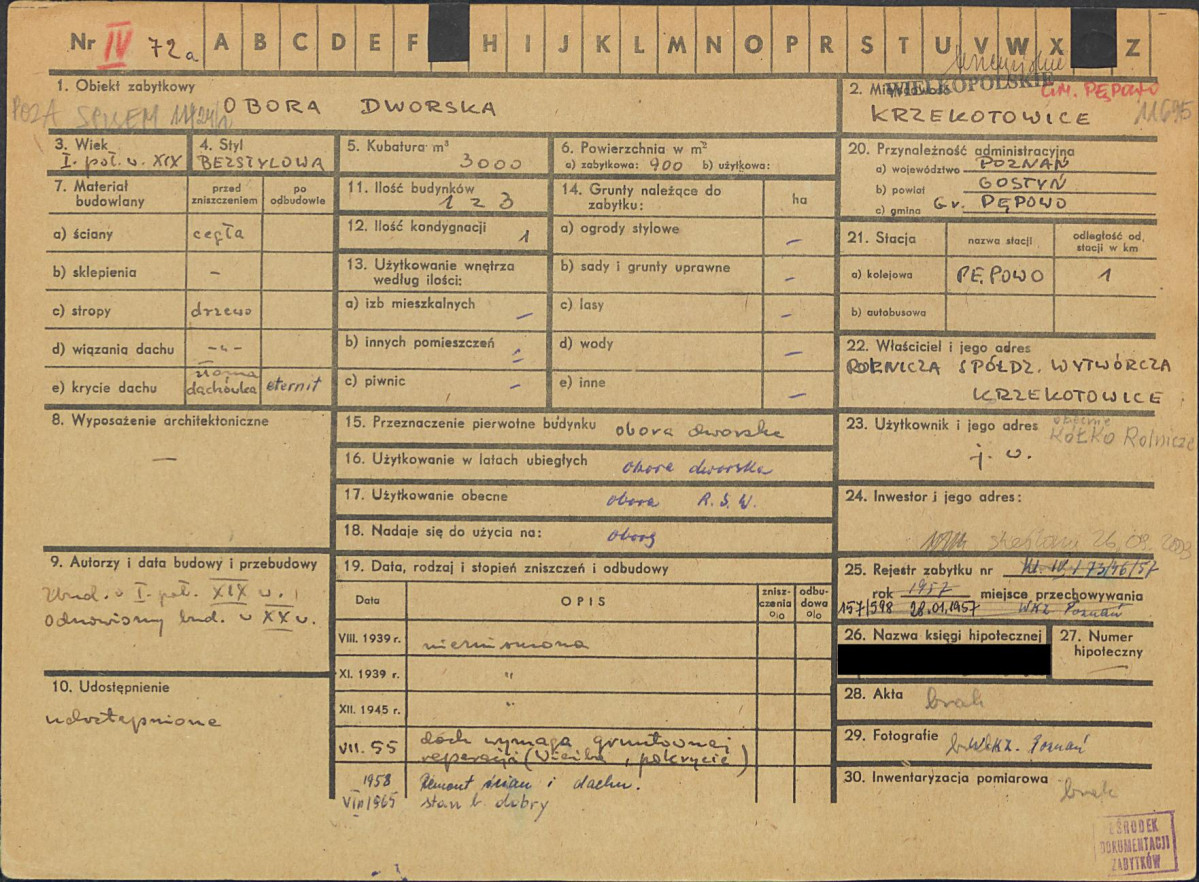 Nr IV 72a A B C D E F H I J K L M N O P R S T U V W X Z
1. Obiekt zabytkowy
OBORA DWORSKA
POZA SPISEM
2. Miejscowość
WIELKOPOLSKIE
GM. PĘPOWO
KRZEKOTOWICE
11695
3. Wiek
I. poł. w. XIX
4. Styl
BEZSTYLOWA
5. Kubatura m³
3000
6. Powierzchnia w m²
a) zabytkowa: 900 b) użytkowa:
7. Materiał budowlany
przed zniszczeniem
po odbudowie
a) ściany cegła
b) sklepienia –
c) stropy drzewo
d) wiązania dachu –"–
e) krycie dachu słoma dachówka eternit
8. Wyposażenie architektoniczne
—
9. Autorzy i data budowy i przebudowy
Zbud. w I. poł. XIX w.,
odnowiony bud. w XX w.
10. Udostępnienie
udostępnione
11. Ilość budynków
1 z 3
12. Ilość kondygnacji 1
13. Użytkowanie wnętrza
według ilości:
a) izb mieszkalnych –
b) innych pomieszczeń =
c) piwnic –
14. Grunty należące do
zabytku:
ha
a) ogrody stylowe –
b) sady i grunty uprawne –
c) lasy –
d) wody –
e) inne –
15. Przeznaczenie pierwotne budynku obora dworska
16. Użytkowanie w latach ubiegłych obora dworska
17. Użytkowanie obecne obora R.S.W.
18. Nadaje się do użycia na: oborę
19. Data, rodzaj i stopień zniszczeń i odbudowy
Data
OPIS
zniszczenia %
odbudowa %
VIII. 1939 r. niezniszczona
XI. 1939 r. "
XII. 1945 r. "
VII. 55 dach wymaga gruntownej
reperacji (więźba, pokrycie)
1958 Remont ścian i dachu.
VIII 1965 stan b. dobry
20. Przynależność administracyjna
a) województwo POZNAŃ
b) powiat GOSTYŃ
c) gmina Gr. PĘPOWO
21. Stacja
nazwa stacji
odległość od stacji w km
a) kolejowa PĘPOWO 1
b) autobusowa
22. Właściciel i jego adres
ROLNICZA SPÓŁDZ. WYTWÓRCZA
KRZEKOTOWICE
23. Użytkownik i jego adres obecnie
Kółko Rolnicze
j. w.
24. Inwestor i jego adres:
skreślono 26.09.2003
25. Rejestr zabytku nr kl. IV/73/46/57
rok 1957 miejsce przechowywania
157/598 28.01.1957 WKZ Poznań
26. Nazwa księgi hipotecznej
27. Numer hipoteczny
—
28. Akta brak
29. Fotografie WKZ. Poznań
30. Inwentaryzacja pomiarowa brak
OŚRODEK
DOKUMENTACJI
ZABYTKÓW